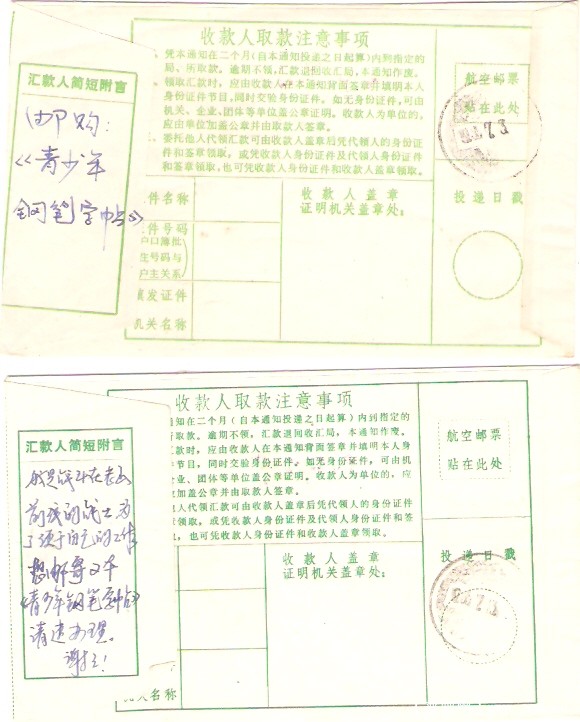 收款人取款注意事项
凭本通知在二个月(自本通知投递之日起算)内到指定的
局、所取款。逾期不领,汇款退回收汇局,本通知作废。
领取汇款时,应由收款人在本通知背面签章并填明本人
身份证件节目,同时交验身份证件。如无身份证件,可由
机关、企业、团体等单位盖公章证明。收款人为单位的,
应由单位加盖公章并由取款人签章。
委托他人代领汇款可由收款人盖章后凭代领人的身份证
件和签章领取,或凭收款人身份证件及代领人身份证件
和签章领取,也可凭收款人身份证件和收款人盖章领取。
航空邮票
贴在此处
汇款人简短附言
邮购:
《青少年
钢笔字帖》
件名称
件号码
户口簿批
住号码与
户主关系
填发证件
机关名称
收款人盖章
证明机关盖章处:
投递日戳
收款人取款注意事项
通知在二个月(自本通知投递之日起算)内到指定的
所取款。逾期不领,汇款退回收汇局,本通知作废。
汇款时,应由收款人在本通知背面签章并填明本人身
件节目,同时交验身份证件。如无身份证件,可由机
企业、团体等单位盖公章证明。收款人为单位的,应
加盖公章并由取款人签章。
他人代领汇款可由收款人盖章后凭代领人的身份证件
章领取,或凭收款人身份证件及代领人身份证件和签
取,也可凭收款人身份证件和收款人盖章领取。
航空邮票
贴在此处
汇款人简短附言
我是战斗在老山
前线的战士,为
了便于自己的工作
想邮寄又本
《青少年钢笔字帖》
请速办理。
谢谢!
收款人盖章
证明机关盖章处:
投递日戳
机关名称